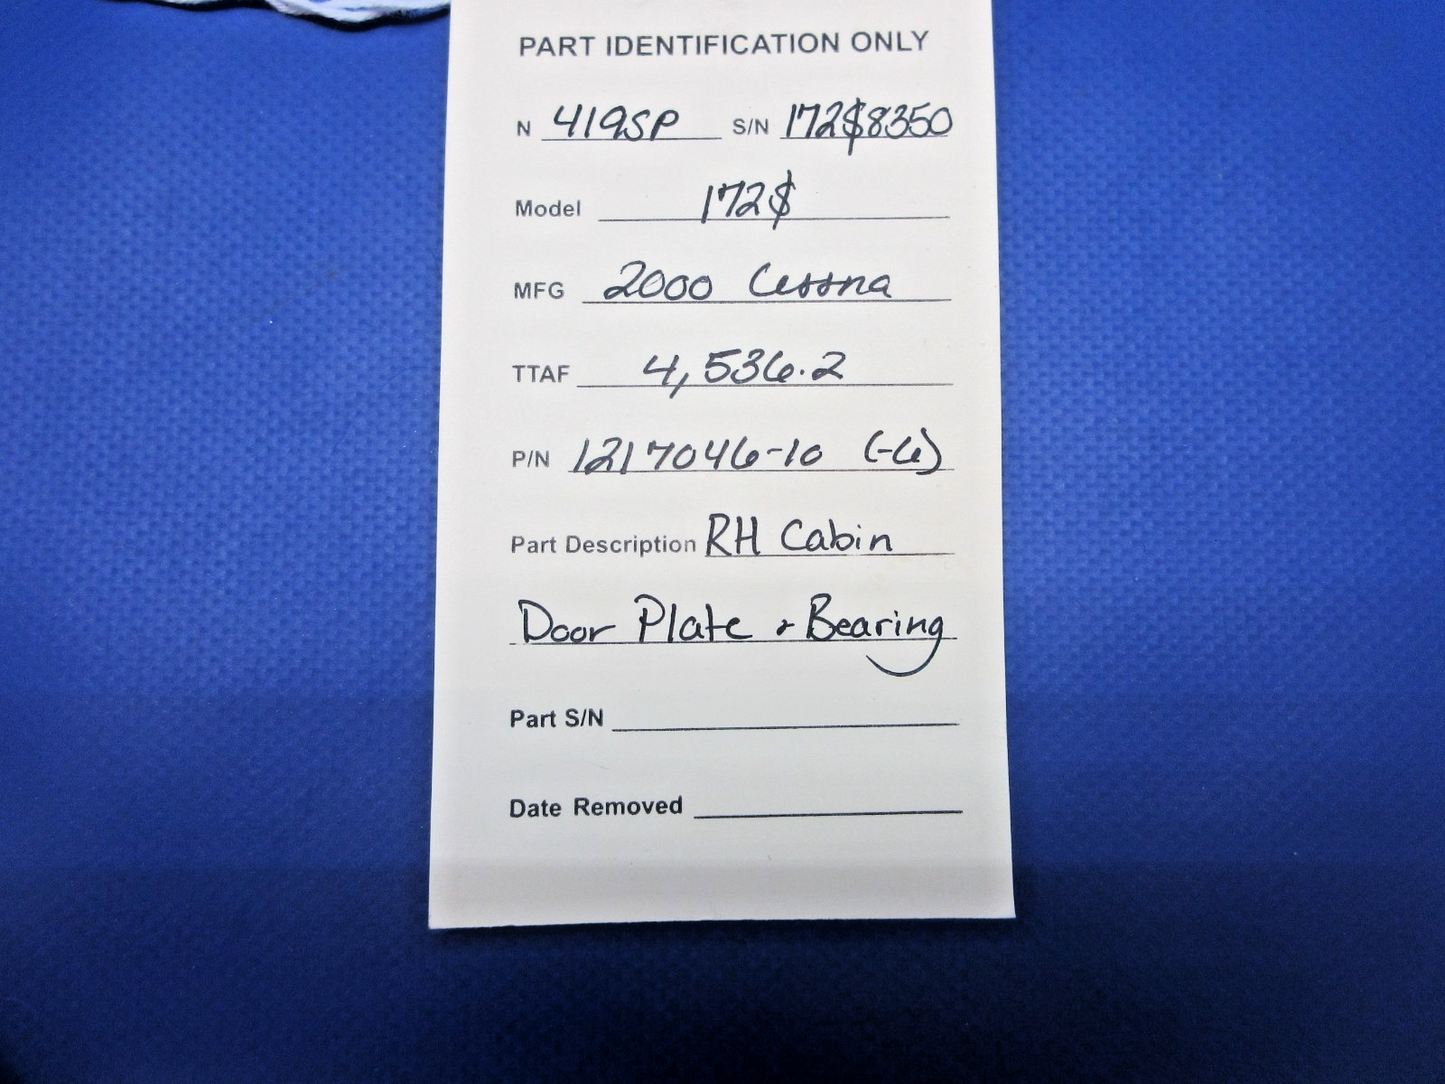 PART IDENTIFICATION ONLY
N 419SP S/N 172$8350
Model 172$
MFG 2000 Cessna
TTAF 4,536.2
P/N 1217046-10 (-6)
Part Description RH Cabin
Door Plate & Bearing
Part S/N
Date Removed